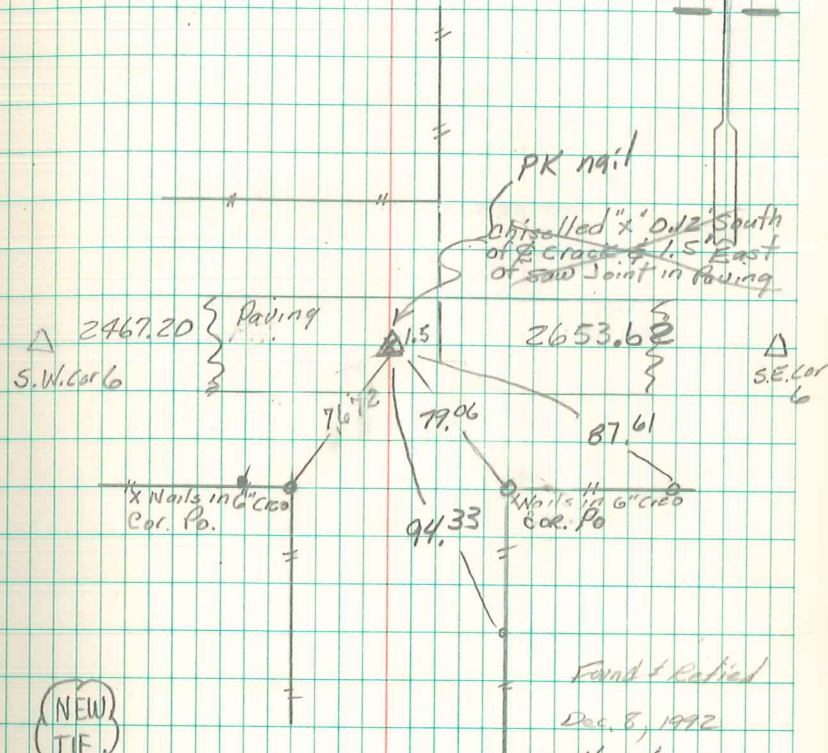 PK nail
Chiselled "x" 0.12' South
of ℄ Crack & 1.5' East
of Saw Joint in Paving
2467.20
Paving
1.5
2653.62
S.W. Cor 6
S.E. Cor
6
76.72
79.06
87.61
"X Nails in 6" Creo
Cor. Po.
"X Nails in 6" Creo
Cor. Po
94.33
Found & Retied
Dec. 8, 1992
NEW
TIE